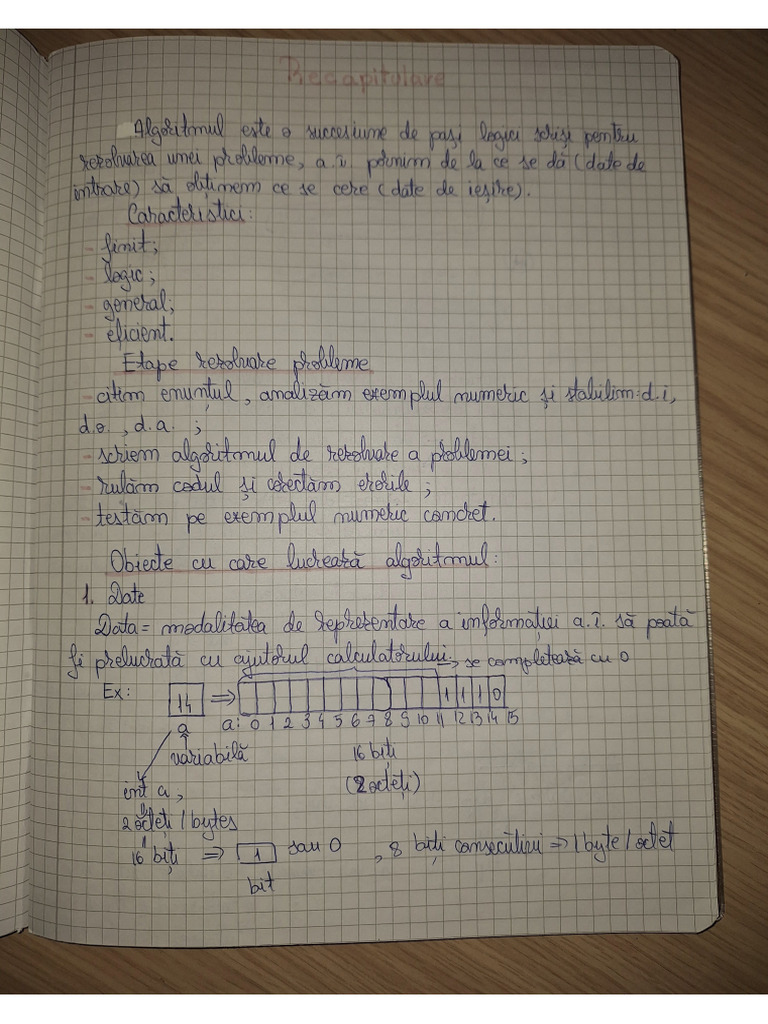 Recapitulare
Algoritmul este o succesiune de pași logici scriși pentru
rezolvarea unei probleme, a.î. pornim de la ce se dă (date de
intrare) să obținem ce se cere (date de ieșire).
Caracteristici:
- finit;
- logic;
- general;
- eficient.
Etape rezolvare probleme
- citim enunțul, analizăm exemplul numeric și stabilim: d.i,
d.e., d.a. ;
- scriem algoritmul de rezolvare a problemei ;
- rulăm codul și corectăm erorile ;
- testăm pe exemplul numeric concret.
Obiecte cu care lucrează algoritmul:
1. Date
Data = modalitatea de reprezentare a informației a.î. să poată
fi prelucrată cu ajutorul calculatorului. , se completează cu 0
Ex: 14 => 1 1 1 0
a a: 0 1 2 3 4 5 6 7 8 9 10 11 12 13 14 15
variabilă 16 biți
int a; (2 octeți)
2 octeți / bytes
16 biți => 1 sau 0 , 8 biți consecutivi => 1 byte / octet
bit